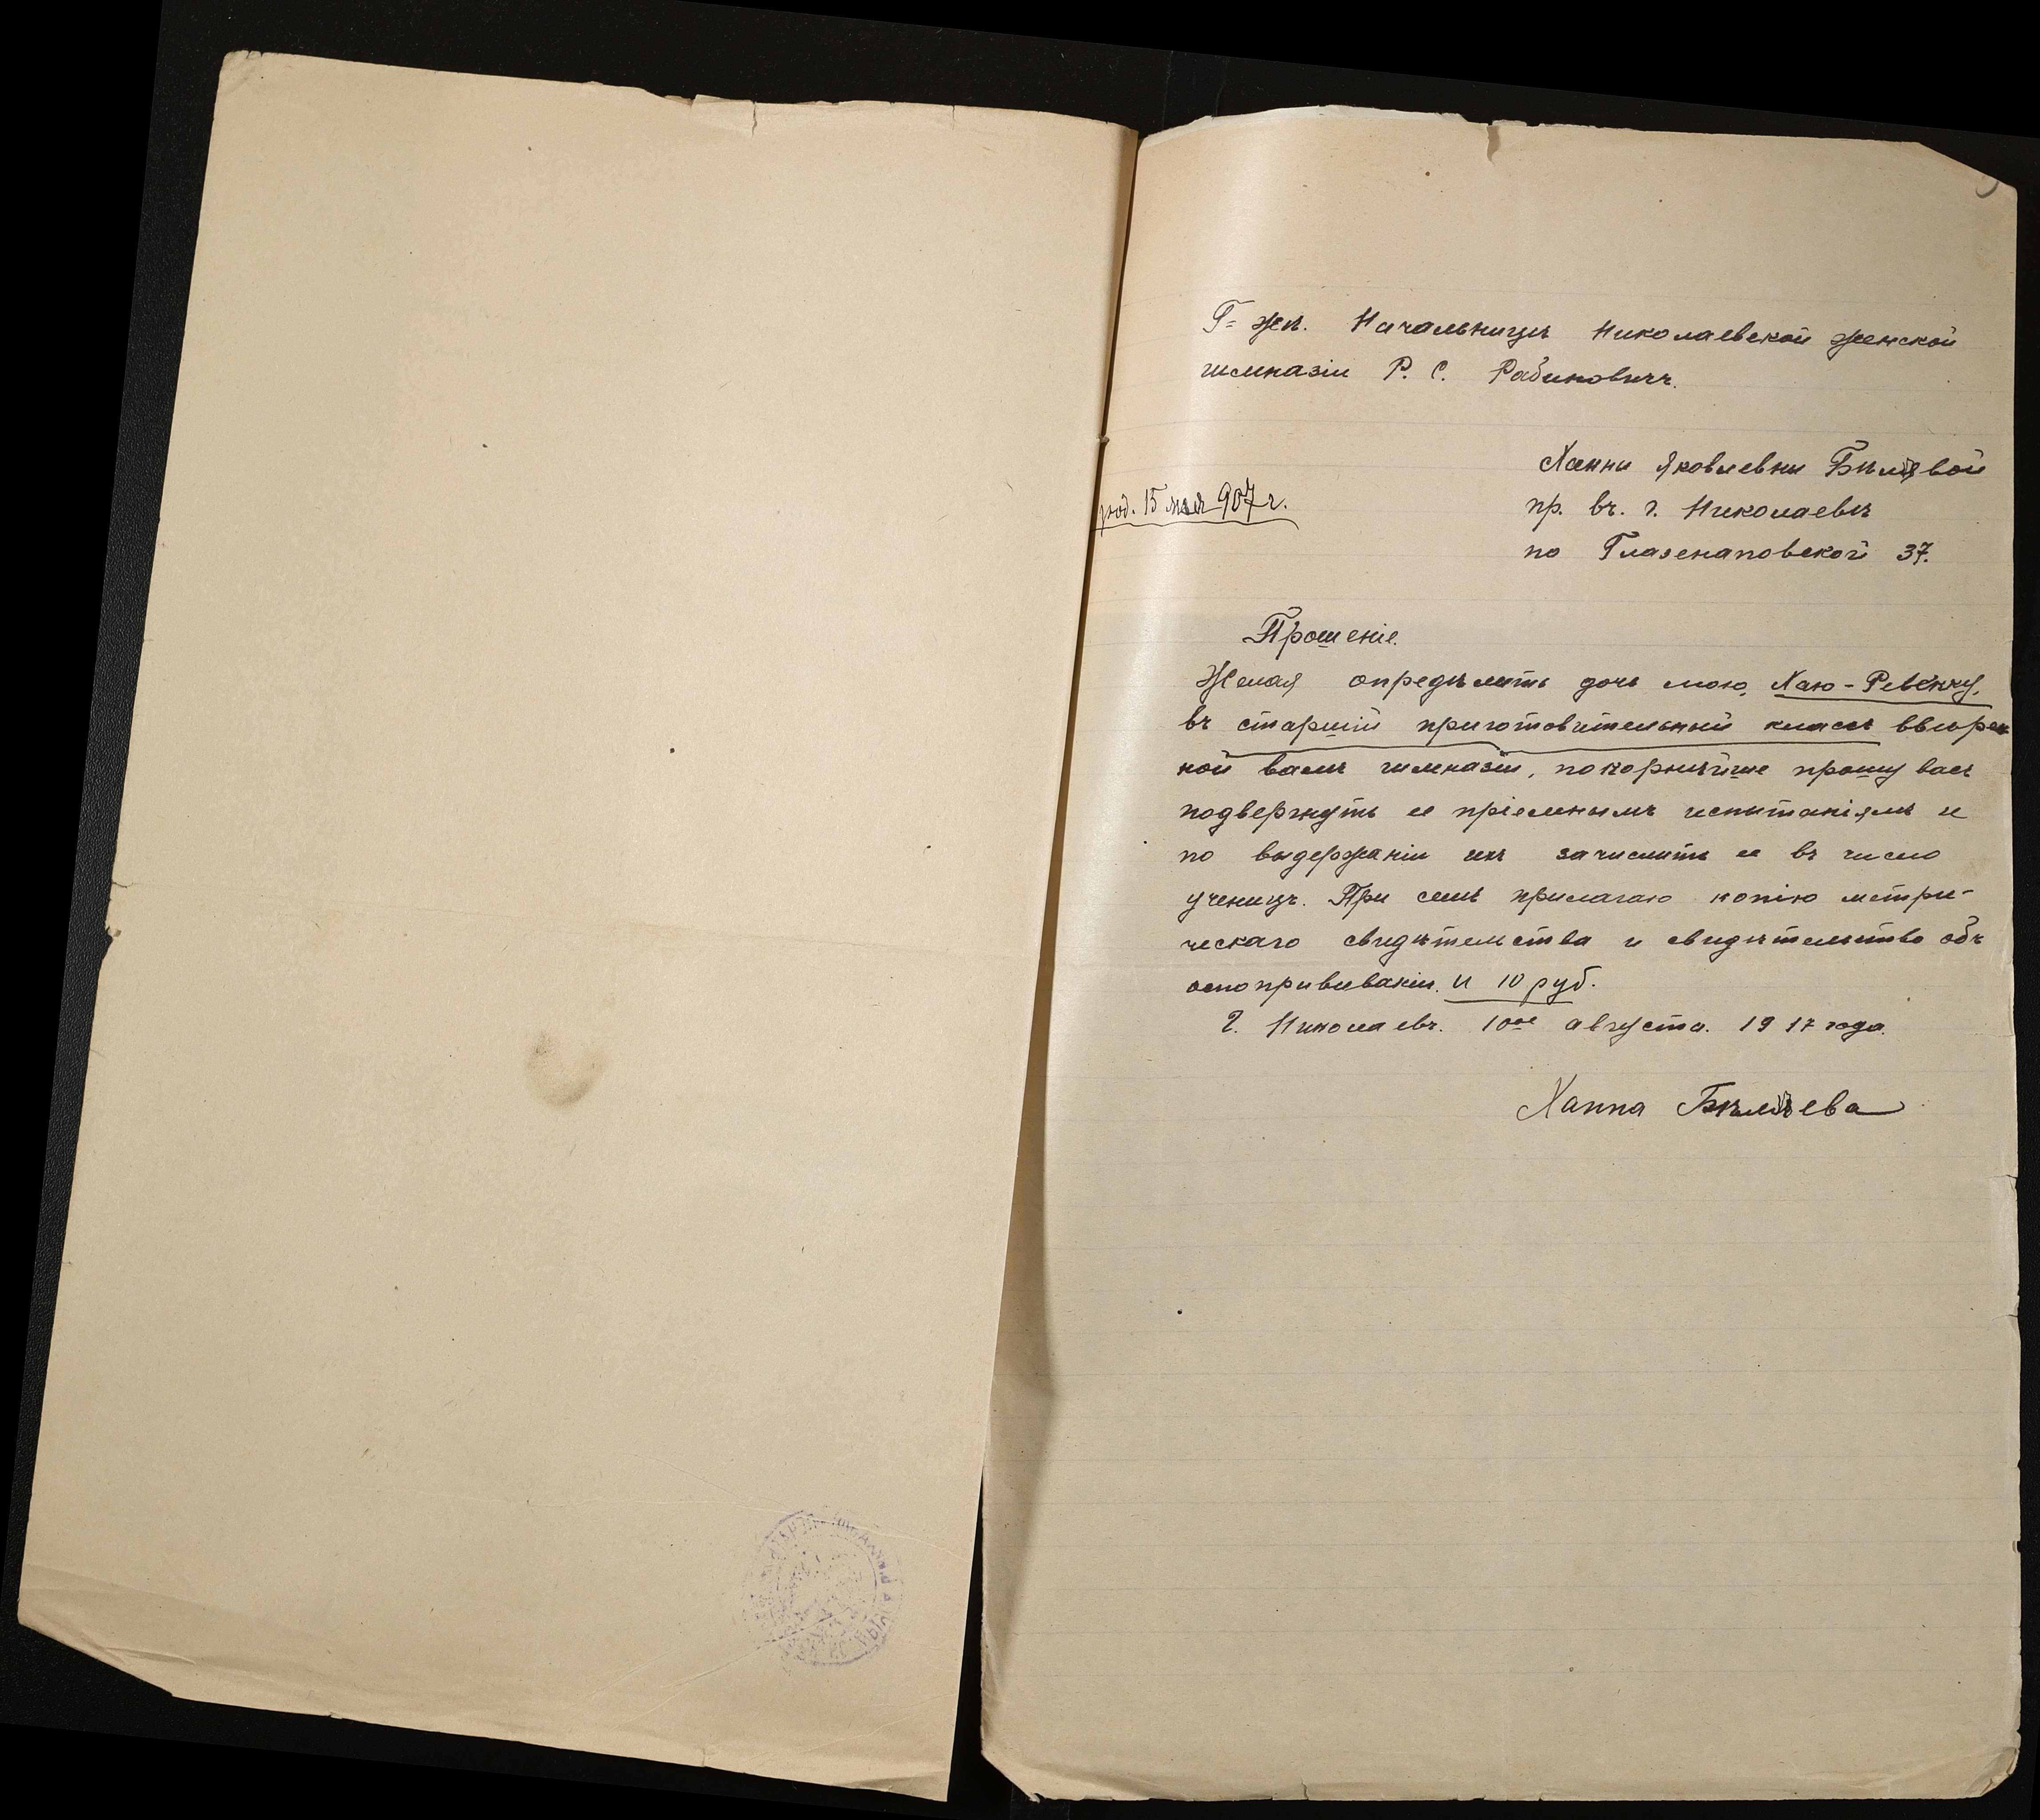 Г=жѣ. Начальницѣ Николаевской женской
гимназіи Р. С. Рабиновичъ.
Ханни Яковлевни
пр. въ. г. Николаевѣ
по Глазенаповской 37.
род. 15 мая 907 г.
Прошеніе.
Желая опредѣлить дочь мою, Хаю-Ревекку,
въ старшій приготовительный классъ ввѣрен
ной вамъ гимназіи, покорнѣйше прошу васъ
подвергнуть ее пріемнымъ испытаніямъ и
по выдержаніи ихъ зачислить ее въ число
ученицъ. При семъ прилагаю копію метри-
ческаго свидѣтельства и свидѣтельство объ
оспопрививаніи. и 10 руб.
Г. Николаевъ. 10ое августа. 1917 года.
Ханна